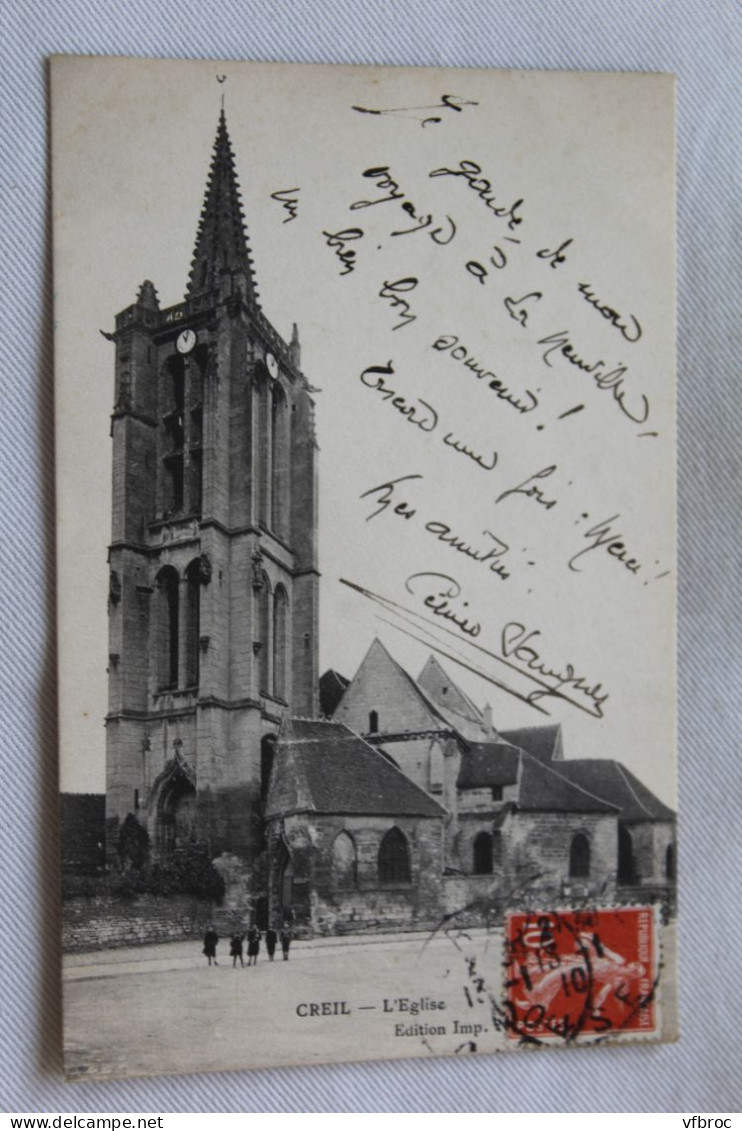 Je garde, de mon
voyage à La Neuville,
un bien bon souvenir !
Encore une fois : Merci !
Mes amitiés,
CREIL — L'Eglise
Edition Imp.
10
RÉPUBLIQUE FRANÇAISE
OISE
vfbroc